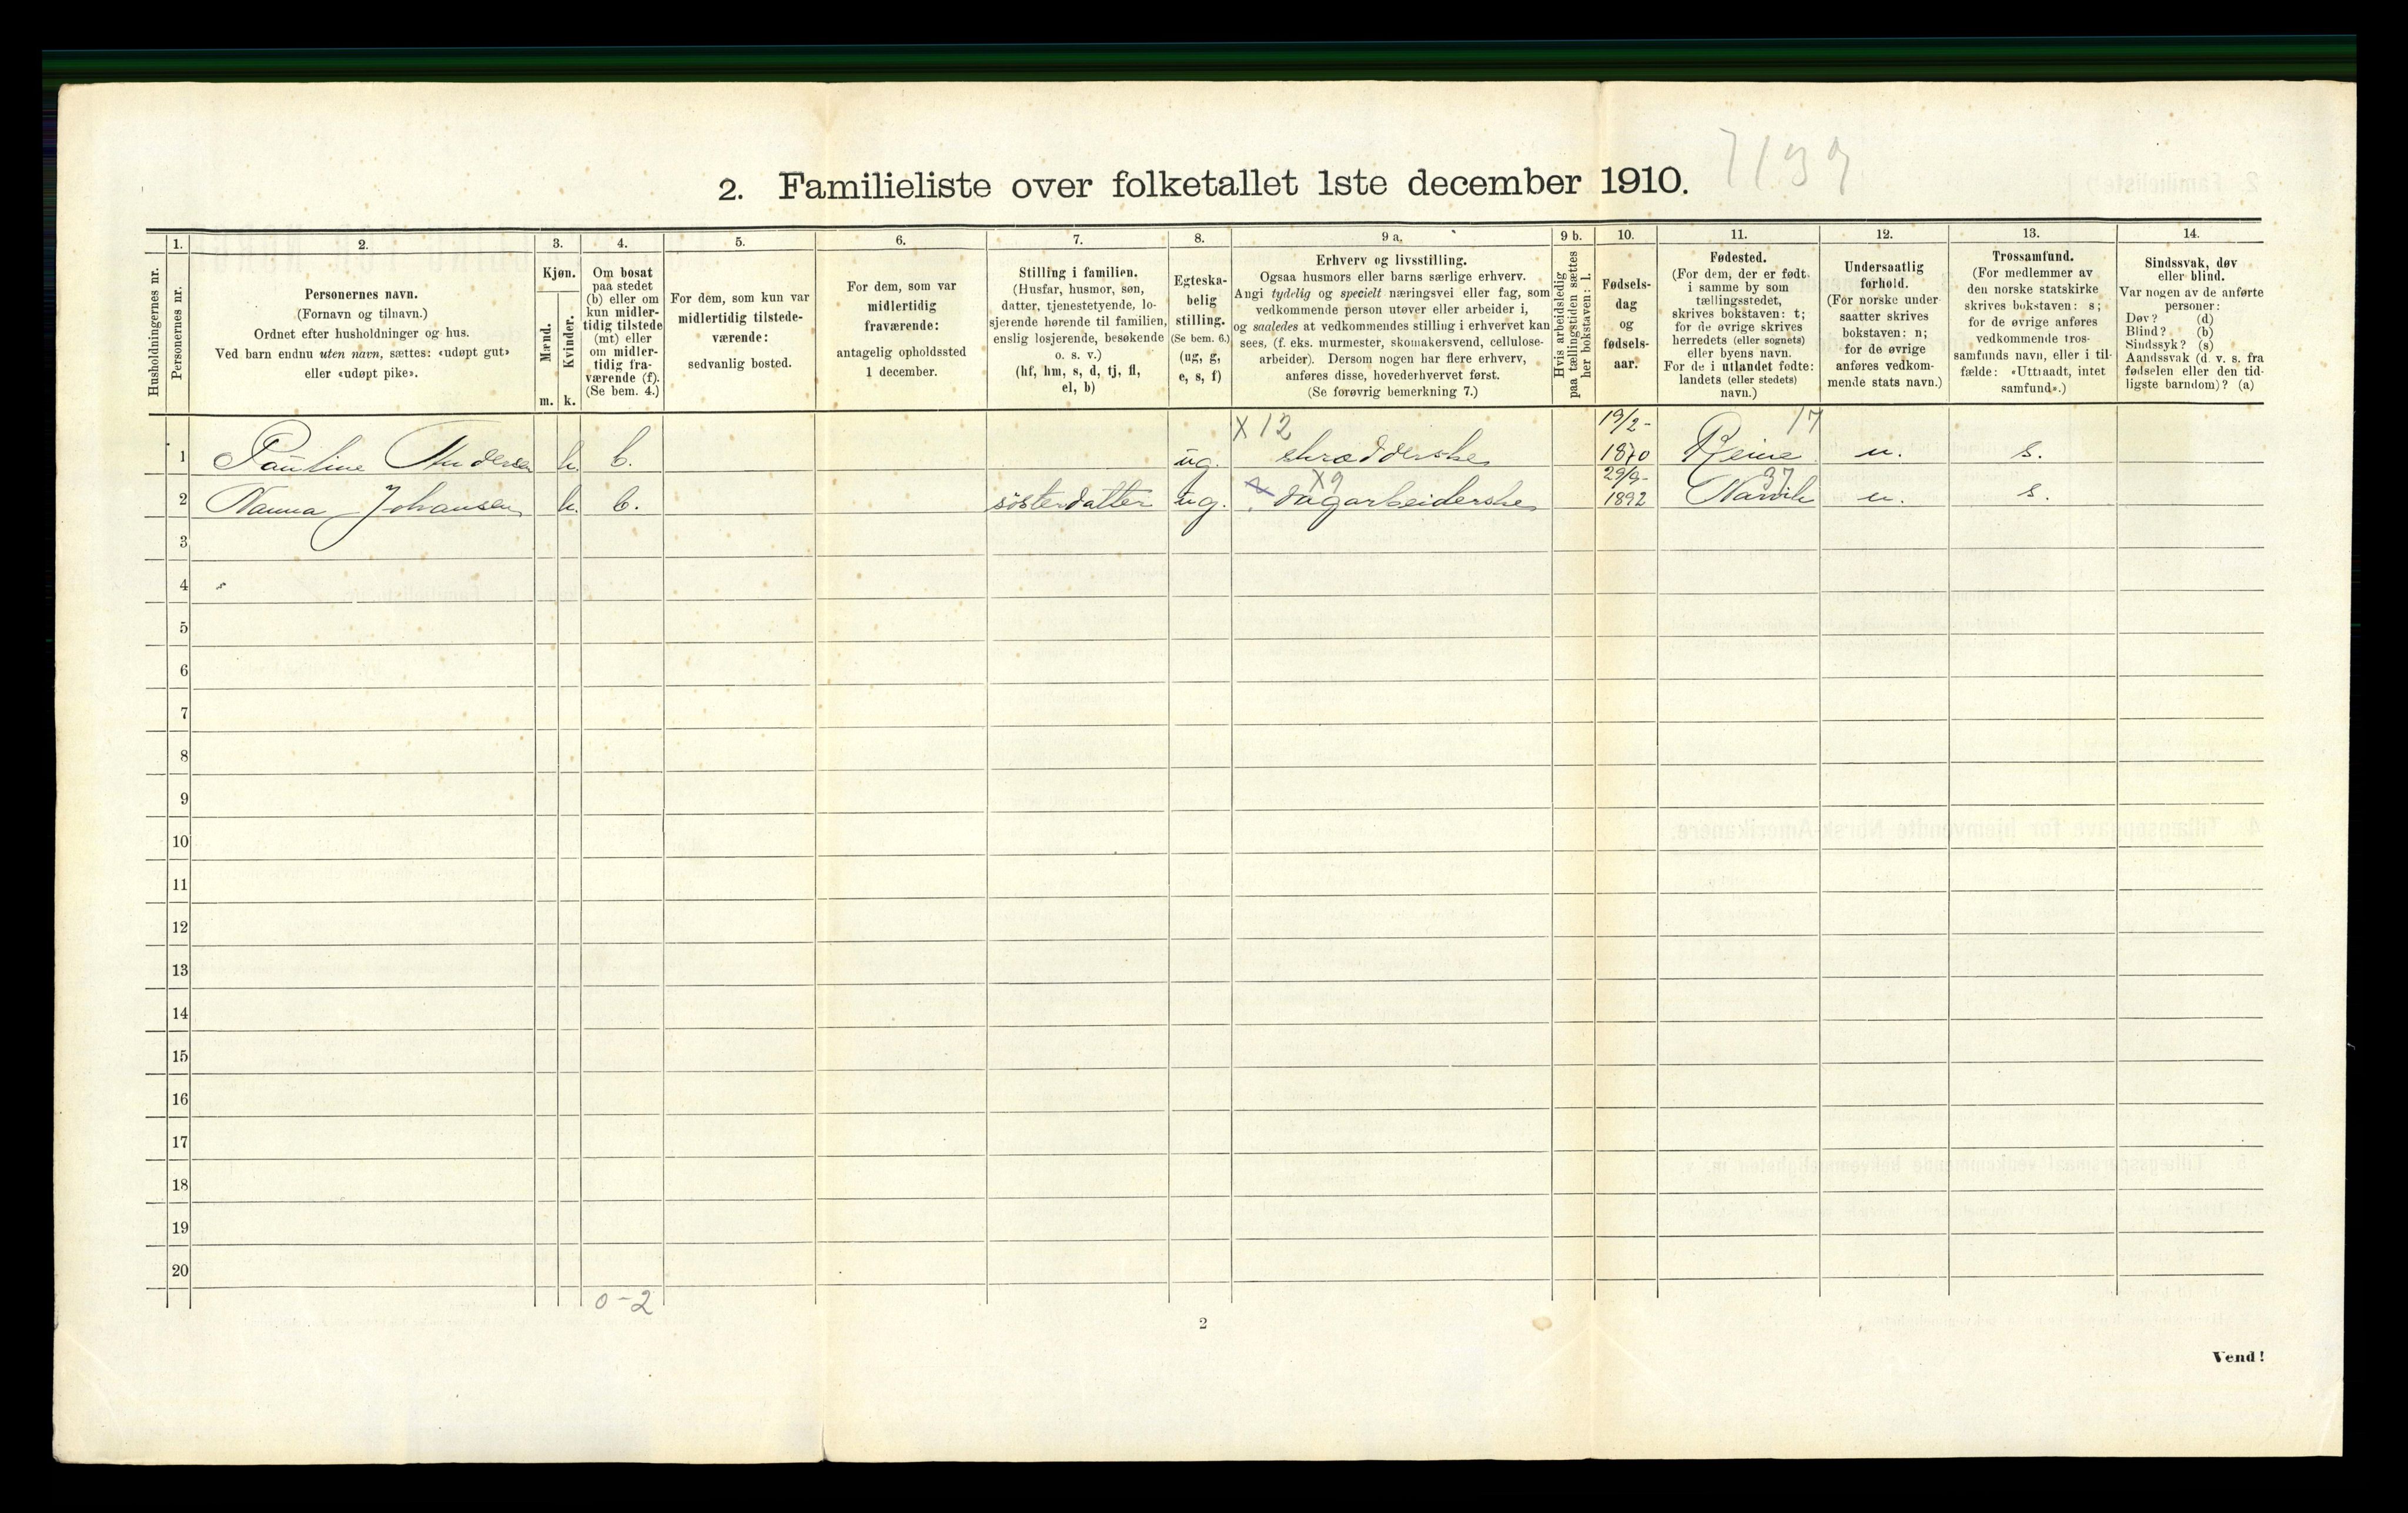 7139
2. Familieliste over folketallet 1ste december 1910.
Husholdningernes nr.
1.
Personernes nr.
2.
Personernes navn.
(Fornavn og tilnavn.)
Ordnet efter husholdninger og hus.
Ved barn endnu uten navn, sættes: «udøpt gut»
eller «udøpt pike».
3.
Kjøn.
Mænd.
Kvinder.
m. k.
4.
Om bosat
paa stedet
(b) eller om
kun midler-
tidig tilstede
(mt) eller
om midler-
tidig fra-
værende (f).
(Se bem. 4.)
5.
For dem, som kun var
midlertidig tilstede-
værende:
sedvanlig bosted.
6.
For dem, som var
midlertidig
fraværende:
antagelig opholdssted
1 december.
7.
Stilling i familien.
(Husfar, husmor, søn,
datter, tjenestetyende, lo-
sjerende hørende til familien,
enslig losjerende, besøkende
o. s. v.)
(hf, hm, s, d, tj, fl,
el, b)
8.
Egteska-
belig
stilling.
(Se bem. 6.)
(ug, g,
e, s, f)
9 a.
Erhverv og livsstilling.
Ogsaa husmors eller barns særlige erhverv.
Angi tydelig og specielt næringsvei eller fag, som
vedkommende person utøver eller arbeider i,
og saaledes at vedkommendes stilling i erhvervet kan
sees, (f. eks. murmester, skomakersvend, cellulose-
arbeider). Dersom nogen har flere erhverv,
anføres disse, hovederhvervet først.
(Se forøvrig bemerkning 7.)
9 b.
Hvis arbeidsledig
paa tællingstiden sættes
her bokstaven: l.
10.
Fødsels-
dag
og
fødsels-
aar.
11.
Fødested.
(For dem, der er født
i samme by som
tællingsstedet,
skrives bokstaven: t;
for de øvrige skrives
herredets (eller sognets)
eller byens navn.
For de i utlandet fødte:
landets (eller stedets)
navn.)
12.
Undersaatlig
forhold.
(For norske under-
saatter skrives
bokstaven: n;
for de øvrige
anføres vedkom-
mende stats navn.)
13.
Trossamfund.
(For medlemmer av
den norske statskirke
skrives bokstaven: s;
for de øvrige anføres
vedkommende tros-
samfunds navn, eller i til-
fælde: «Uttraadt, intet
samfund».)
14.
Sindssvak, døv
eller blind.
Var nogen av de anførte
personer:
Døv? (d)
Blind? (b)
Sindssyk? (s)
Aandssvak (d. v. s. fra
fødselen eller den tid-
ligste barndom)? (a)
X 12 19/2- 17
1 Pauline Andersen k. b. ug. skrædderske 1870 Reine n. s.
X9 29/9- 37
2 Nanna Johansen k. b. søsterdatter ug. dagarbeiderske 1892 Narvik n. s.
3
4
5
6
7
8
9
10
11
12
13
14
15
16
17
18
19
20
0-2
2
Vend!